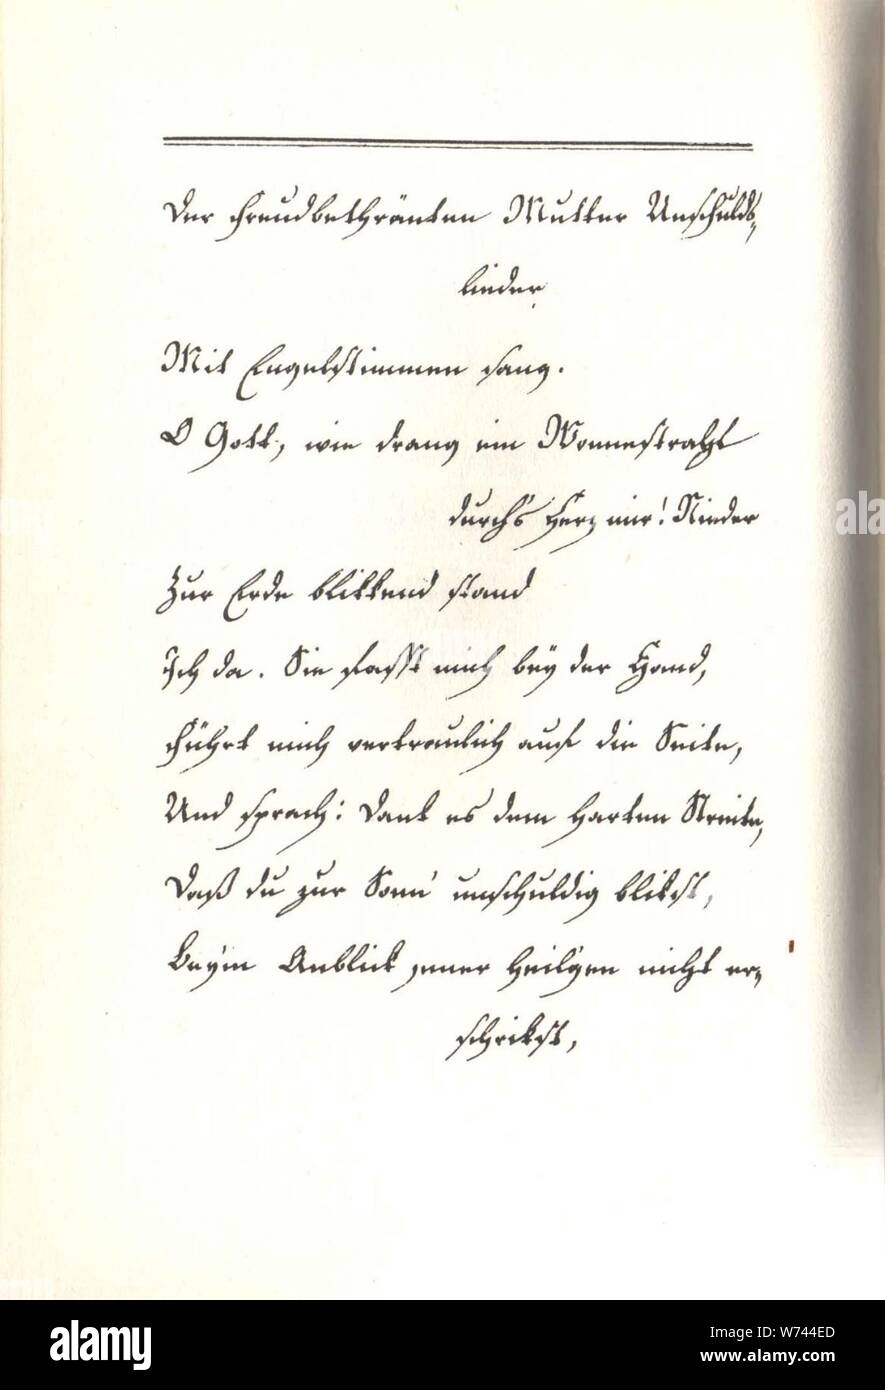 Der freudbethränten Mutter Unschulds-
lieder
Mit Engelsstimmen sang.
O Gott, wie drang ein Wonnestrahl
durch's Herz mir! Nieder
Zur Erde blikkend stand
Ich da. Sie fasst mich bey der Hand,
Führt mich vertraulich auf die Seite,
Und sprach: Dank es dem harten Streite,
Daß du zur Sonn' unschuldig blikst,
Beym Anblick jener Heil'gen nicht er-
schrikst,
alamy
W744ED
www.alamy.com